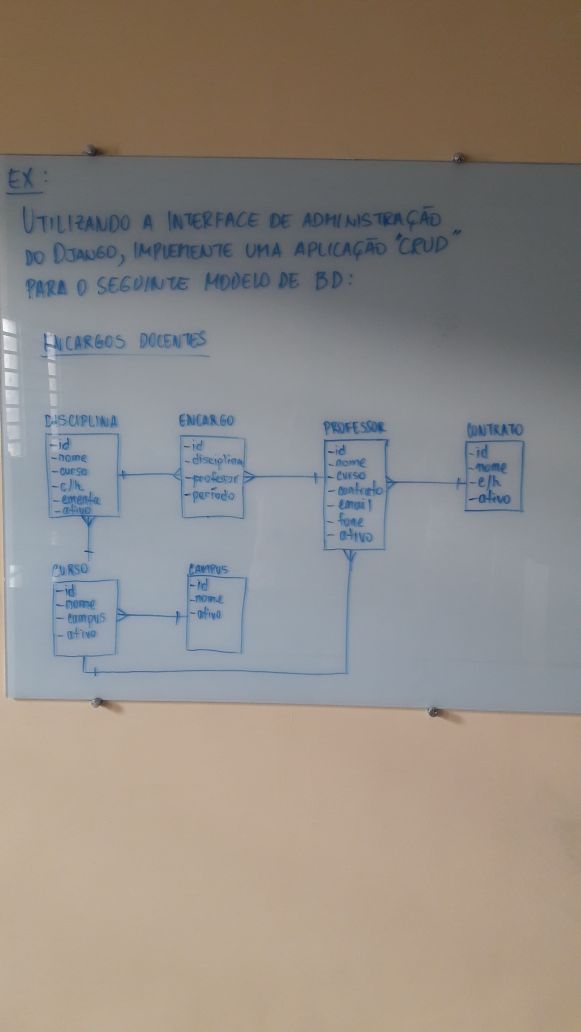 EX:
UTILIZANDO A INTERFACE DE ADMINISTRAÇÃO
DO DJANGO, IMPLEMENTE UMA APLICAÇÃO "CRUD"
PARA O SEGUINTE MODELO DE BD:
ENCARGOS DOCENTES
DISCIPLINA
-id
-nome
-curso
-c/h
-ementa
-ativo
ENCARGO
-id
-disciplina
-professor
-período
PROFESSOR
-id
-nome
-curso
-contrato
-email
-fone
-ativo
CONTRATO
-id
-nome
-c/h
-ativo
CURSO
-id
-nome
-campus
-ativo
CAMPUS
-id
-nome
-ativo